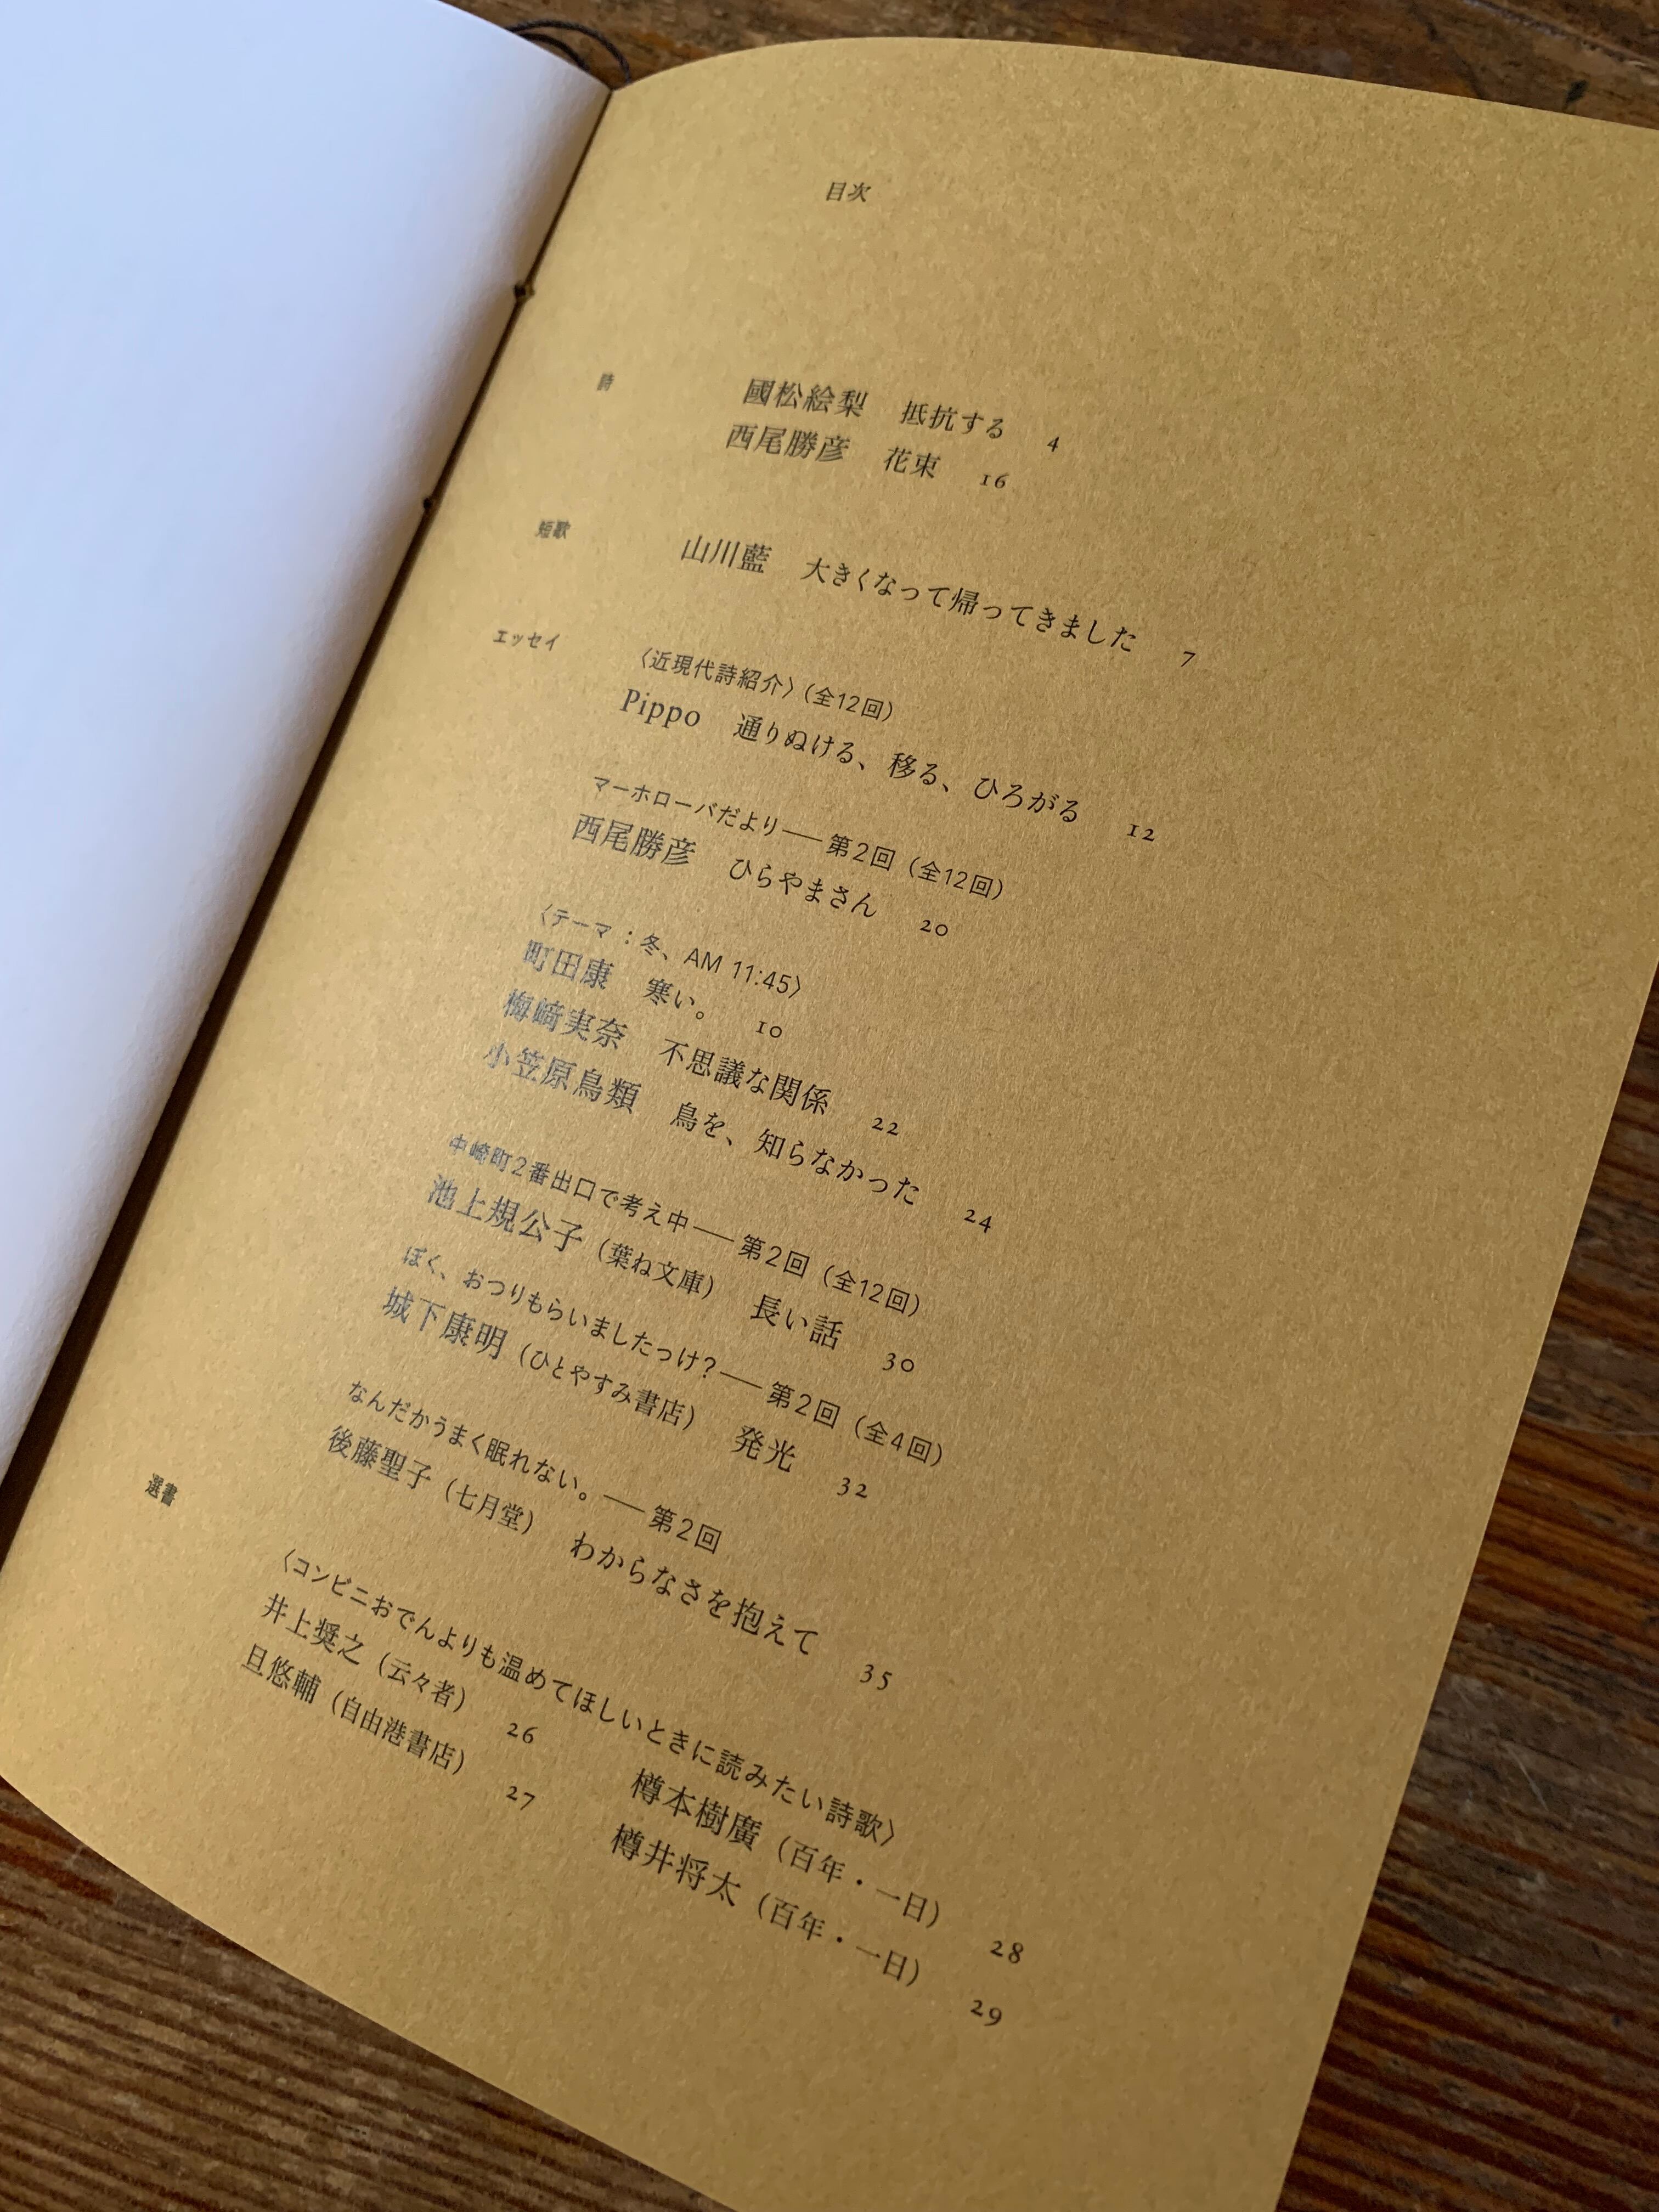 目次
詩
國松絵梨 抵抗する 4
西尾勝彦 花束 16
短歌
山川藍 大きくなって帰ってきました 7
エッセイ
〈近現代詩紹介〉(全12回)
Pippo 通りぬける、移る、ひろがる 12
マーホローバだより──第2回(全12回)
西尾勝彦 ひらやまさん 20
〈テーマ:冬、AM 11:45〉
町田康 寒い。 10
梅﨑実奈 不思議な関係 22
小笠原鳥類 鳥を、知らなかった 24
中崎町2番出口で考え中──第2回(全12回)
池上規公子(葉ね文庫) 長い話 30
ぼく、おつりもらいましたっけ?──第2回(全4回)
城下康明(ひとやすみ書店) 発光 32
なんだかうまく眠れない。──第2回
後藤聖子(七月堂) わからなさを抱えて 35
選書
〈コンビニおでんよりも温めてほしいときに読みたい詩歌〉
井上奨之(云々者) 26
旦悠輔(自由港書店) 27
樽本樹廣(百年・一日) 28
樽井将太(百年・一日) 29